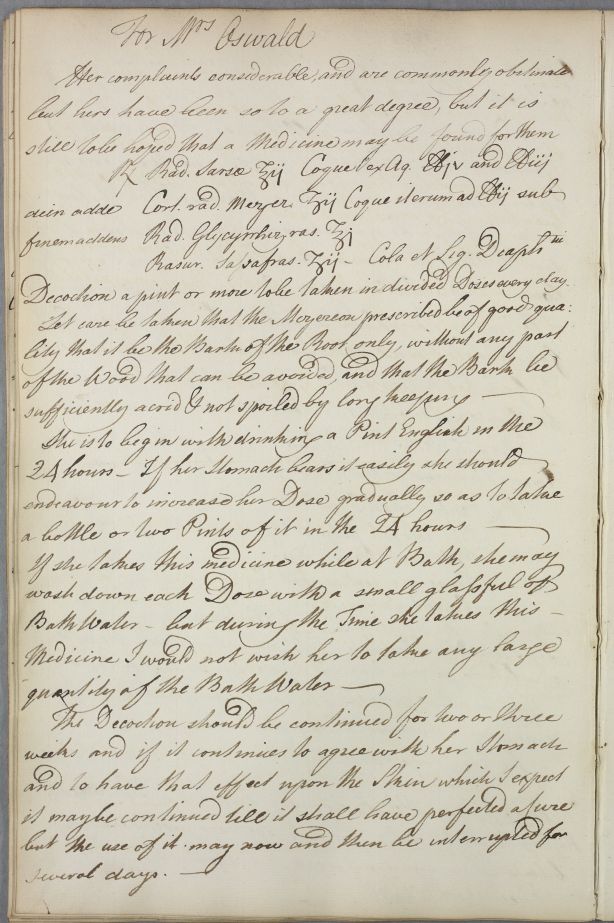 For Mrs Oswald
Her complaints considerable, and are commonly obstinate
but hers have been so to a great degree, but it is
still to be hoped that a Medicine may be found for them
℞ Rad. Sarsæ ʒij Coque ex Aq. ℔jv and ℔iij
dein adde Cort. rad. Mezer. ʒij Coque iterum ad ℔ij sub
finem addens Rad. Glycyrrhiz. ras. ʒj
Rasur. Sassafras. ʒij – Cola et Sig. Decoptn
Decoction a pint or more to be taken in divided Doses every day.
Let care be taken that the Mezereon prescribed be of good qua:
lity that it be the Bark of the Root only, without any part
of the Wood that can be avoided, and that the Bark be
sufficiently acrid & not spoiled by long keeping —
She is to begin with drinking a Pint English in the
24 hours – If her Stomach bears it easily she should
endeavour to increase her Dose gradually so as to take
a bottle or two Pints of it in the 24 hours —
If she takes this medicine while at Bath, she may
wash down each Dose with a small glassful of
Bath Water – but during the Time she takes this –
Medicine I would not wish her to take any large
quantity of the Bath Water —
The Decoction should be continued for two or three
weeks and if it continues to agree with her Stomach
and to have that effect upon the Skin which I expect
it may be continued till it shall have perfected a Cure
but the use of it may now and then be interrupted for
several days. —